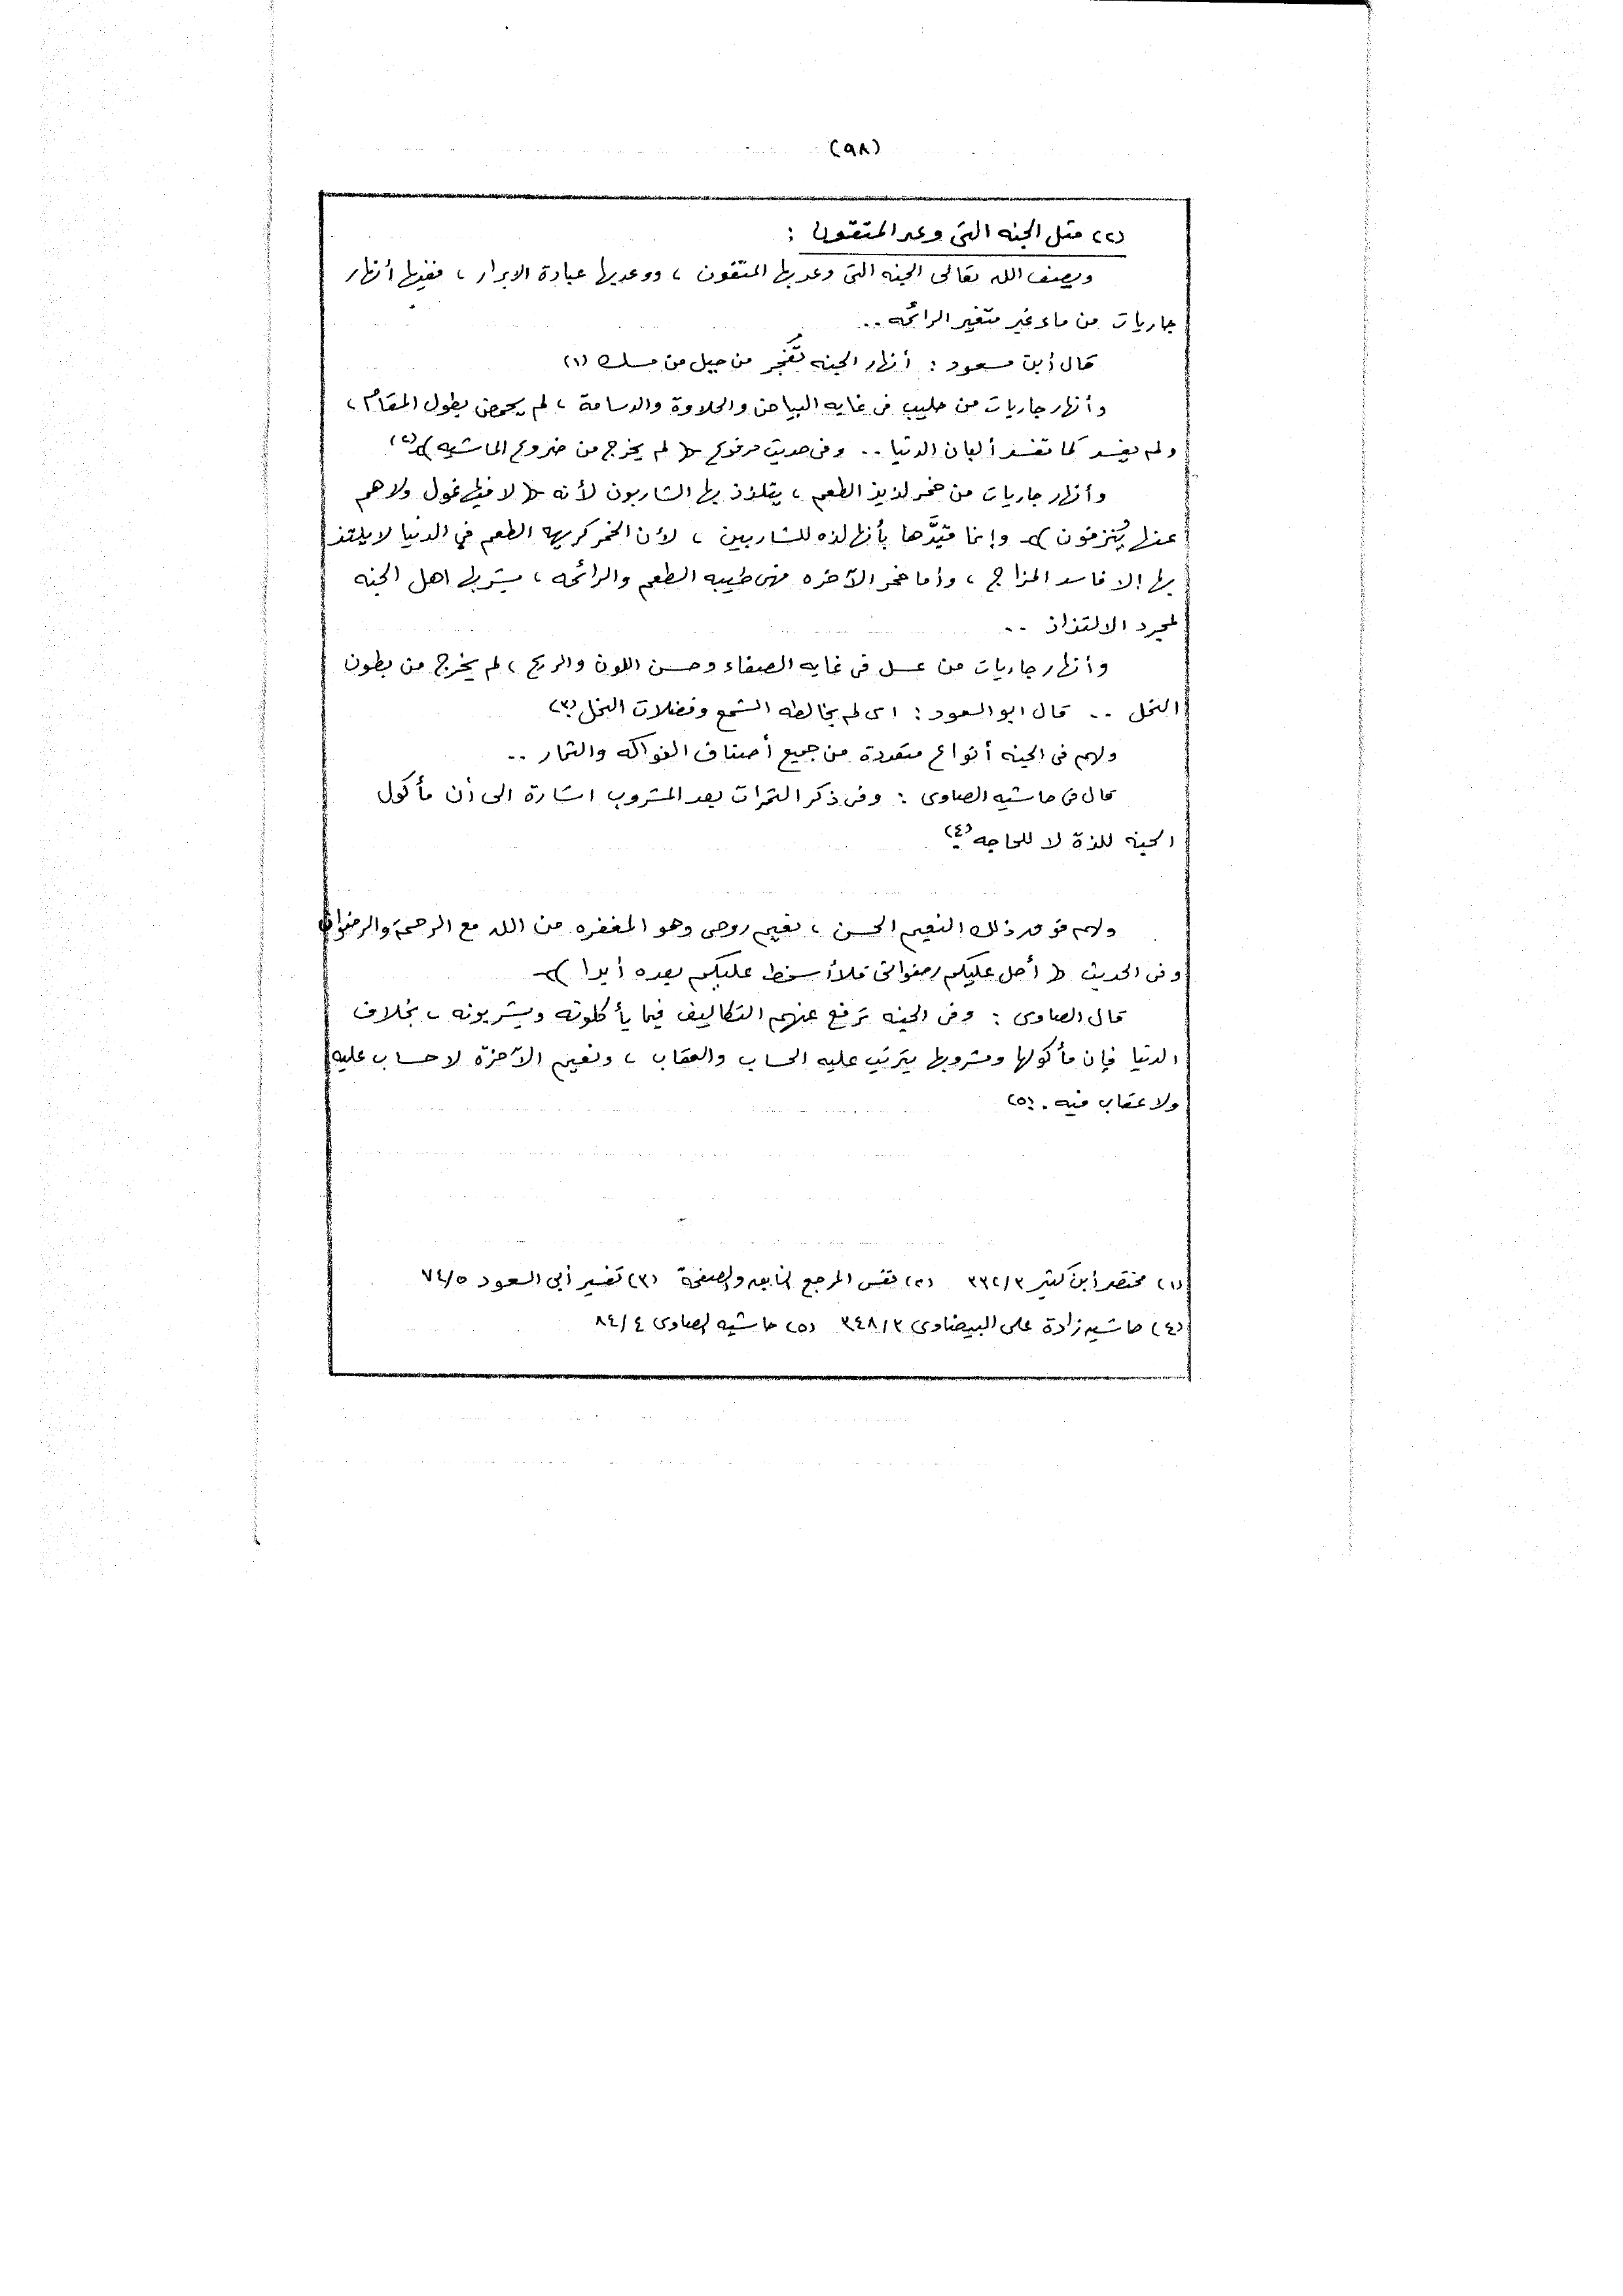 (٩٨)
(٢) مثل الجنه التى وعد المتقون :
ويصف الله تعالى الجنه التى وعد بها المتقون ، ووعد بها عبادة الابرار ، ففيها أنهار
جاريات من ماء غير متغير الرائحه ..
قال أبن مسعود : أنهار الجنه تُفجر من جبل من مسك (١)
وأنهار جاريات من حليب فى غايه البياض والحلاوة والدسامة ، لم يحمض بطول المقام ،
ولم يفسد كما تفسد ألبان الدنيا .. وفى حديث مرفوع « لم يخرج من ضروع الماشيه » (٢)
وأنهار جاريات من خمر لذيذ الطعم ، يتلذذ بها الشاربون لأنه « لا فيها غول ولا هم
عنها يُنزفون » وإنما قيَّدها بأنها لذه للشاربين ، لأن الخمر كريهه الطعم في الدنيا لا يلتذ
بها إلا فاسد المزاج ، وأما خمر الآخره فهى طيبه الطعم والرائحه ، يشربها اهل الجنه
لمجرد الالتذاذ ..
وأنهار جاريات من عسل فى غايه الصفاء وحسن اللون والريح ، لم يخرج من بطون
النحل .. قال ابو السعود : اى لم يخالطه الشمع وفضلات النحل (٣)
ولهم فى الجنه أنواع متعددة من جميع أصناف الفواكه والثمار ..
قال فى حاشيه الصاوى : وفى ذكر الثمرات بعد المشروب اشارة الى أن مأكول
الجنه للذة لا للحاجه (٤)
ولهم فوق ذلك النعيم الحسن ، نعيم روحى وهو المغفره من الله مع الرحمة والرضوان
وفى الحديث « أحل عليكم رضوانى فلا أسخط عليكم بعده أبدا »
قال الصاوى : وفى الجنه ترفع عنهم التكاليف فيما يأكلونه ويشربونه ، بخلاف
الدنيا فإن مأكولها ومشروبها يترتب عليه الحساب والعقاب ، ونعيم الآخرة لا حساب عليه
ولا عقاب فيه . (٥)
(١) مختصر أبن كثير ٣٣٢/٣ (٢) نفس المرجع السابق والصفحة (٣) تفسير أبى السعود ٧٤/٥
(٤) حاشيه زادة على البيضاوى ٣٤٨/٣ (٥) حاشيه الصاوى ٨٤/٤